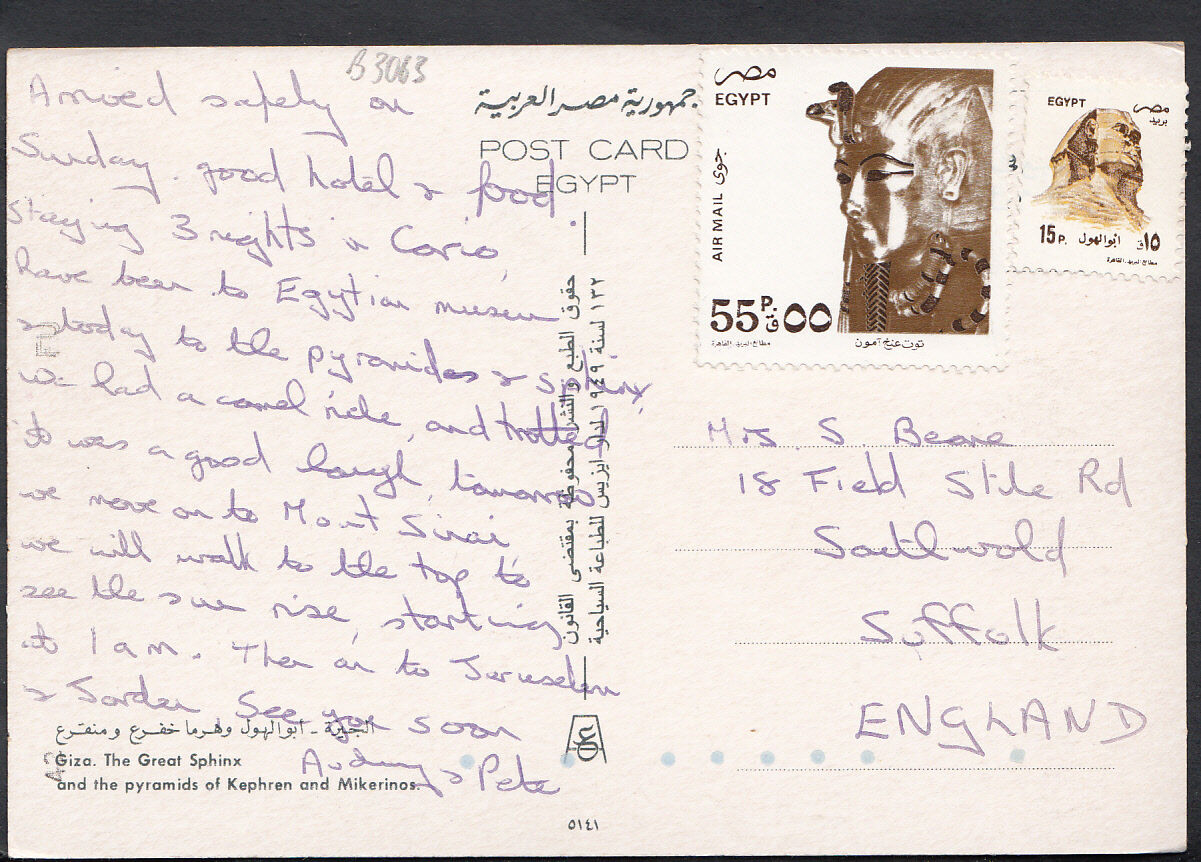 B3063
Arrived safely on
Sunday. good hotel & food.
Staying 3 nights in Cario,
have been to Egytian museum
& today to the pyramides & sphinx,
we had a camel ride, and trotted
it was a good laugh, tomorrow
we move on to Mount Sinai
we will walk to the top to
see the sun rise, starting
at 1 am. Then on to Jerusalem
& Jorden See you soon
Audrey & Pete
جمهورية مصر العربية
POST CARD
EGYPT
حقوق الطبع والنشر محفوظة بمقتضى القانون
١٣٢ لسنة ١٩٤٩ لدار ايزيس للطباعة السياحية
مصر
EGYPT
AIR MAIL جوى
55P. ٥٥ق
مطابع البريد - القاهرة
توت عنخ آمون
EGYPT مصر
بريد
15P. ابوالهول ١٥ق
مطابع البريد - القاهرة
Mrs S. Beare
18 Field Stile Rd
Southwold
Suffolk
ENGLAND
الجيزة - ابوالهول وهرما خفرع ومنقرع
Giza. The Great Sphinx
and the pyramids of Kephren and Mikerinos.
٥١٤١